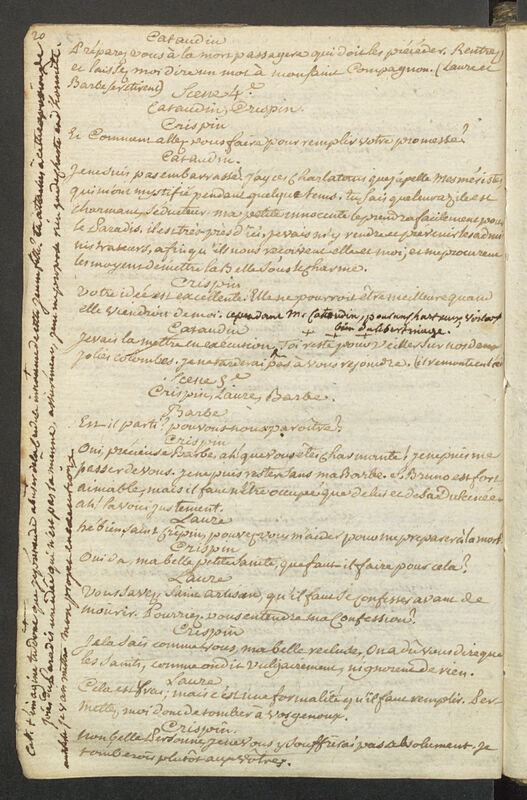 20
Cataudin
Préparez vous à la mort passagere qui doit les précéder. Rentrez
et laissez moi dire un mot à mon saint Compagnon. (Laure et
Barbe sortent)
Scene 4e.
Cataudin, Crispin.
Crispin
Et Comment allez vous faire pour remplir votre promesse?
Cataudin.
Je ne suis pas embarrassé. J'ay ces Charlatans que j'apelle Mesméristes
qui m'ont mystifié pendant quelque tems. tu sais que leur azile est
charmant, Séducteur. ma petite innocente le prendra facilement pour
le Paradis. il est très près d'ici. je vais m'y rendre et prévenir les admi
nistrateurs, afin qu'ils nous reçoivent elle et moi, et me procurent
les moyens de mettre la Belle sous le charme.
Crispin
Votre idée est excellente. Elle ne pourroit être meilleure quand
elle viendroit de moi. cependant Mr. Cataudin, pour un
bien du libertinage. +
Cataudin
Je vais la mettre en execution. toi reste pour veiller sur nos deux
jolies colombes. je ne tarderai pas à vous rejoindre. (il remonte
Scene 5e.
Crispin, Laure, Barbe.
Barbe
Est il parti? pouvons nous paroître?
Crispin
Oui, précieuse Barbe, ah! que vous êtes charmante! je ne puis me
passer de vous. je ne puis rester sans ma Barbe. St Bruno est fort
aimable, mais il faut n'être occupé que de lui et de sa Dulcinée
ah! la voici justement.
Laure
hé bien Saint Crépin, pouvez vous m'aider pour me preparer à la mort
Crispin
Oui da, ma belle petite Sainte, que faut-il faire pour cela?
Laure
Vous savez, Saint artisan, qu'il faut se confesser avant de
mourir. Pourriez vous entendre ma Confession?
Crispin
Je la sais comme vous, ma belle recluse. On a du vous dire que
les Saints, comme on dit vulgairement, n'ignorent de rien.
Laure
Cela est vrai; mais c'est une formalité qu'il faut remplir. Per
mettez moi donc de tomber à vos genoux.
Crispin.
non belle Personne, je ne vous y souffrirai pas absolument. je
tomberois plutôt aux votres.
Cat. + imagine tu donc que je prétende abuser de la bonne de cette jeune fille?
paradis
aussi je vais mettre mon projet en execution